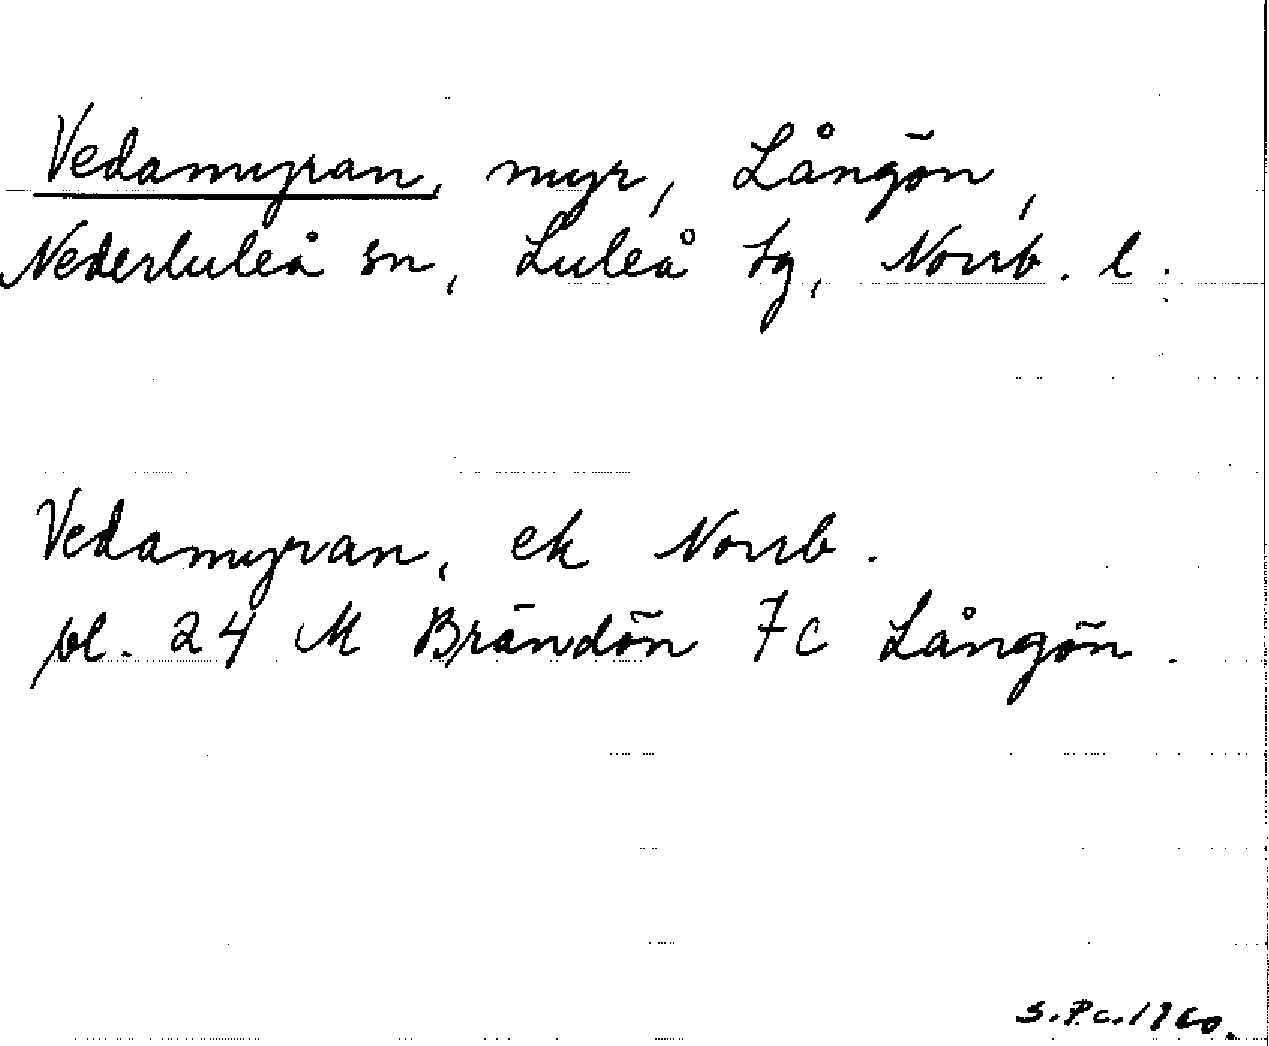 Vedamyran, myr, Långön,
Nederluleå sn, Luleå tg, Norrb. l.
Vedamyran, ek Norrb.
bl. 24 M Brändön 7c Långön.
S.P.c. 1960.